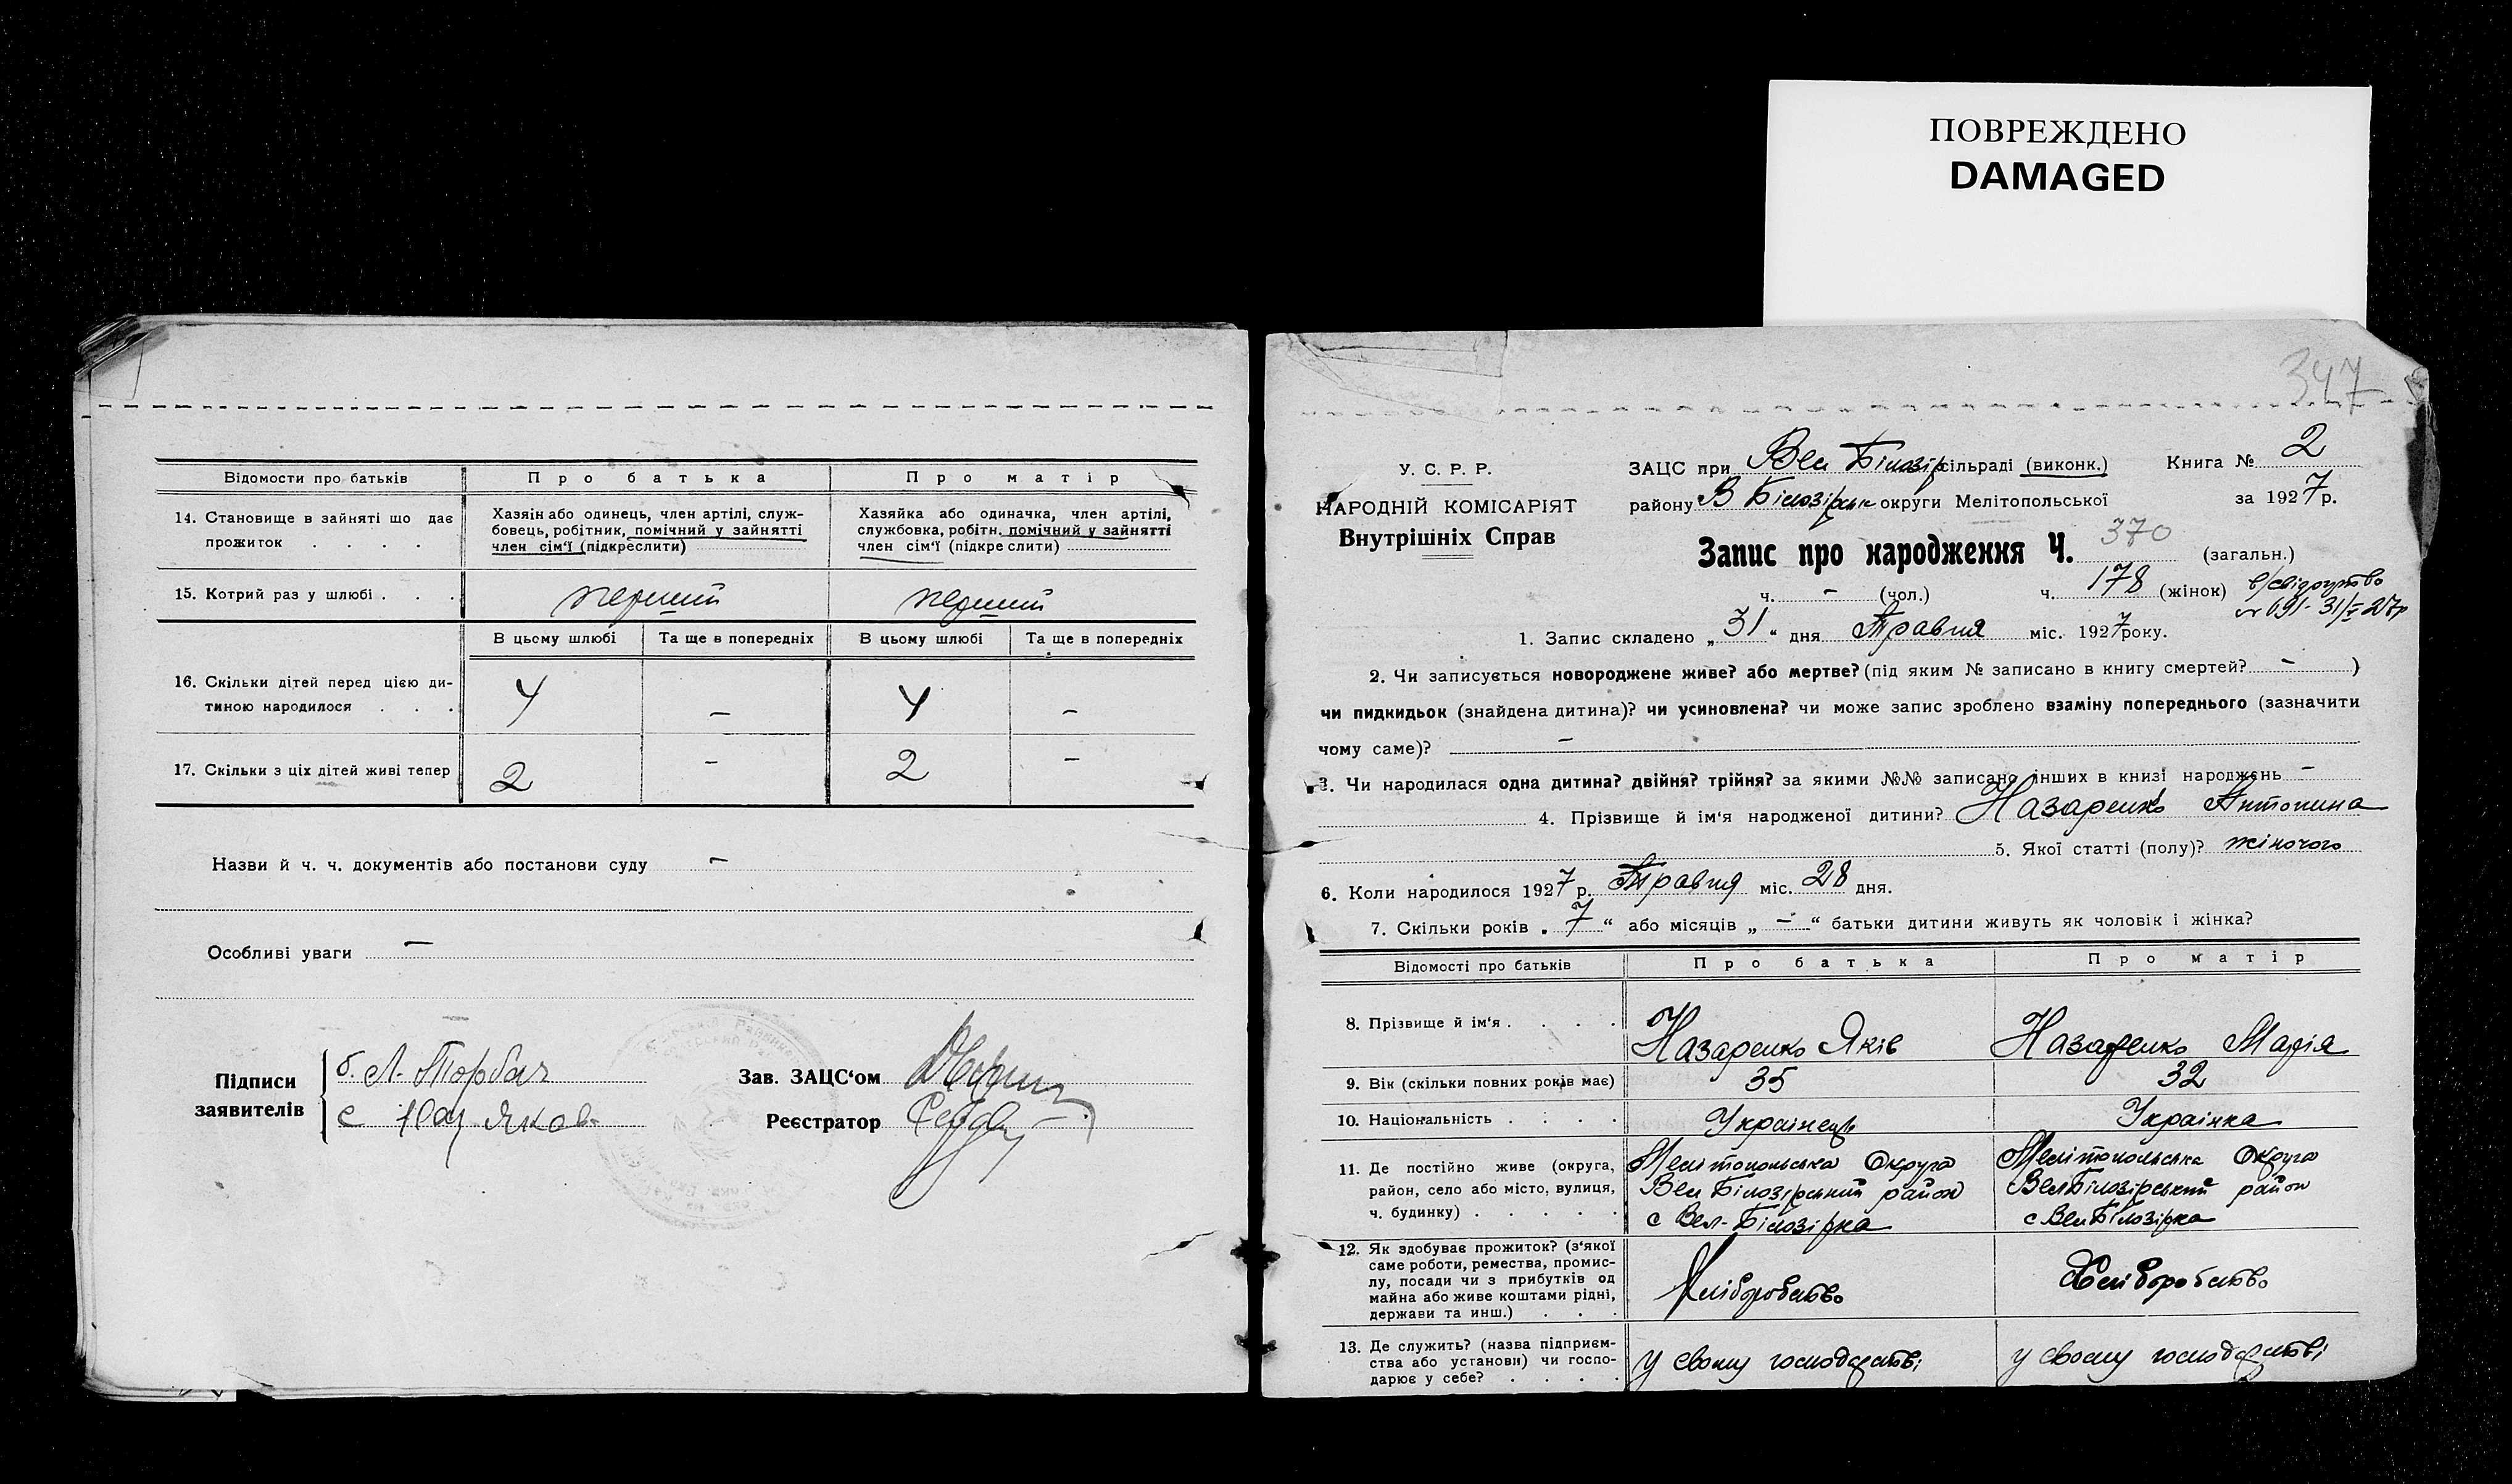 ПОВРЕЖДЕНО
DAMAGED
Відомости про батьків
Про батька
Про матір
14. Становище в зайняті що дає
прожиток . . . .
Хазяїн або одинець, член артілі, служ-
бовець, робітник, помічний у зайнятті
член сім'ї (підкреслити)
Хазяйка або одиначка, член артілі,
службовка, робітн. помічний у зайнятті
член сім'ї (підкреслити)
15. Котрий раз у шлюбі . . .
перший
перший
В цьому шлюбі
Та ще в попередніх
В цьому шлюбі
Та ще в попередніх
16. Скільки дітей перед цією ди-
тиною народилося . . .
4
–
4
–
17. Скільки з ціх дітей живі тепер
2
–
2
–
Назви й ч. ч. документів або постанови суду –
Особливі уваги –
Підписи
заявителів
Зав. ЗАЦС'ом
Реєстратор
347
У. С. Р. Р.
НАРОДНІЙ КОМІСАРІЯТ
Внутрішніх Справ
ЗАЦС при Вел Білозір сільраді (виконк.)
Книга № 2
району В Білозірськ округи Мелітопольської
за 1927 р.
Запис про народження Ч. 370 (загальн.)
ч. – (чол.) ч. 178 (жінок)
1. Запис складено „31“ дня Травня міс. 1927 року.
2. Чи записується новороджене живе? або мертве? (під яким № записано в книгу смертей? – )
чи пидкидьок (знайдена дитина)? чи усиновлена? чи може запис зроблено взаміну попереднього (зазначити
чому саме)? –
3. Чи народилася одна дитина? двійня? трійня? за якими №№ записано інших в книзі народжень –
4. Прізвище й ім'я народженої дитини? Назаренко Антонина
5. Якої статті (полу)? жіночого
6. Коли народилося 1927 р. Травня міс. 28 дня.
7. Скільки років „7“ або місяців „–“ батьки дитини живуть як чоловік і жінка?
Відомості про батьків
Про батька
Про матір
8. Прізвище й ім'я . . . .
Назаренко Яків
Назаренко Марія
9. Вік (скільки повних років має)
35
32
10. Національність . . . .
Українець
Українка
11. Де постійно живе (округа,
район, село або місто, вулиця,
ч. будинку) . . . . .
Мелітопольська Округа
Вел Білозірський район
с Вел-Білозірка
Мелітопольська Округа
Вел Білозірський район
с Вел Білозірка
12. Як здобуває прожиток? (з'якої
саме роботи, ремества, промис-
лу, посади чи з прибутків од
майна або живе коштами рідні,
держави та инш.) . . .
Хліборобство
Хліборобство
13. Де служить? (назва підприєм-
ства або установи) чи госпо-
дарює у себе? . . . .
у свому господарстві
у свому господарстві